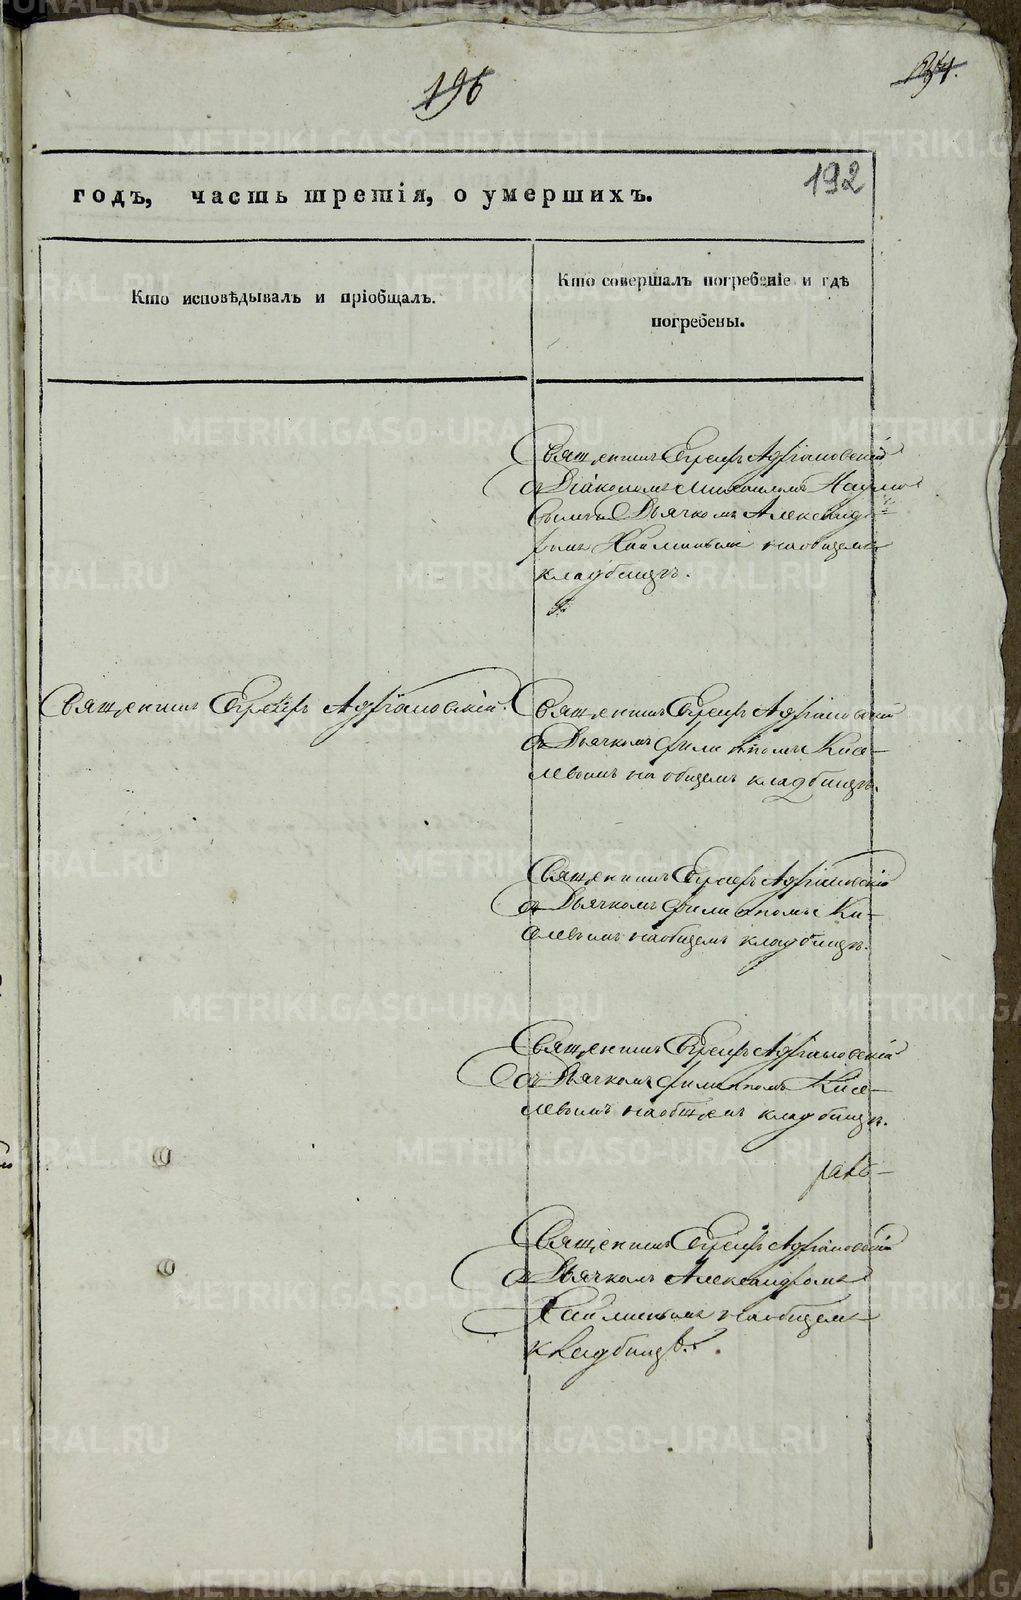 196
192
годъ, часть третія, о умершихъ.
Кто исповѣдывалъ и пріобщалъ.
Кто совершалъ погребеніе и гдѣ
погребены.
Священникъ Адріановскій
съ Діакономъ Михаиломъ Наумо
вымъ и Дьячкомъ Александ
ромъ на общемъ
кладбищѣ.
Священникъ Адріановскій.
Священникъ Адріановскій
съ Дьячкомъ Филиппомъ Кисе-
левымъ на общемъ кладбищѣ.
Священникъ Адріановскій
съ Дьячкомъ Филиппомъ Ки-
селевымъ на общемъ кладбищѣ.
Священникъ Адріановскій
съ Дьячкомъ Филиппомъ Кисе-
левымъ на общемъ кладбищѣ.
Священникъ Адріановскій
съ Дьячкомъ Александромъ
на общемъ
кладбищѣ.
METRIKI.GASO-URAL.RU